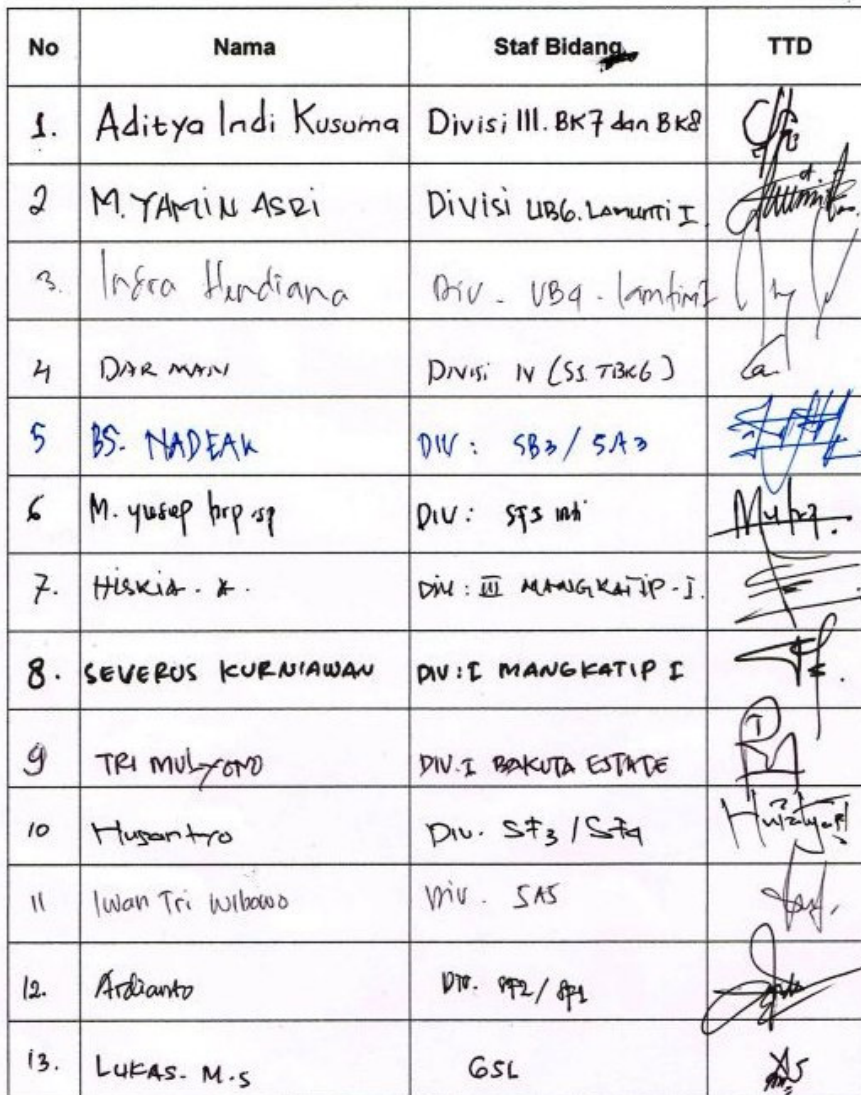 No Nama Staf Bidang TTD
1. Aditya Indi Kusuma Divisi III. BK7 dan BK8
2 M. YAMIN ASRI Divisi UB6. Lamunti I
3. Infra Hendiana Div - UB4 -
4 DARMAN Divisi IV (SS. TBK6)
5 BS. NADEAK DIV : SB3 / SA3
6 M. yusup hrp. sp DIV : inti
7. HISKIA . A . DIV : III MANGKATIP - I.
8. SEVERUS KURNIAWAN DIV : I MANGKATIP I
9 TRI MULYONO DIV. I BAKUTA ESTATE
10 Husantyo Div. SF3 / SF4
11 Iwan Tri Wibowo Div . SA5
12. Ardianto Div. SF2 / SF1
13. LUKAS. M.S GSL